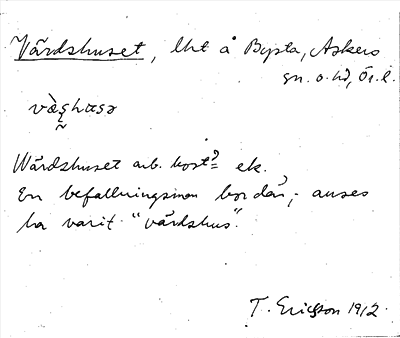 Värdshuset, lht å Bysta, Askers
sn. o. hd, Ör. l.
Wärdshuset arb. kost? ek.
En befallningsman bor där, anses
ha varit "värdshus".
T. Ericsson 1912.